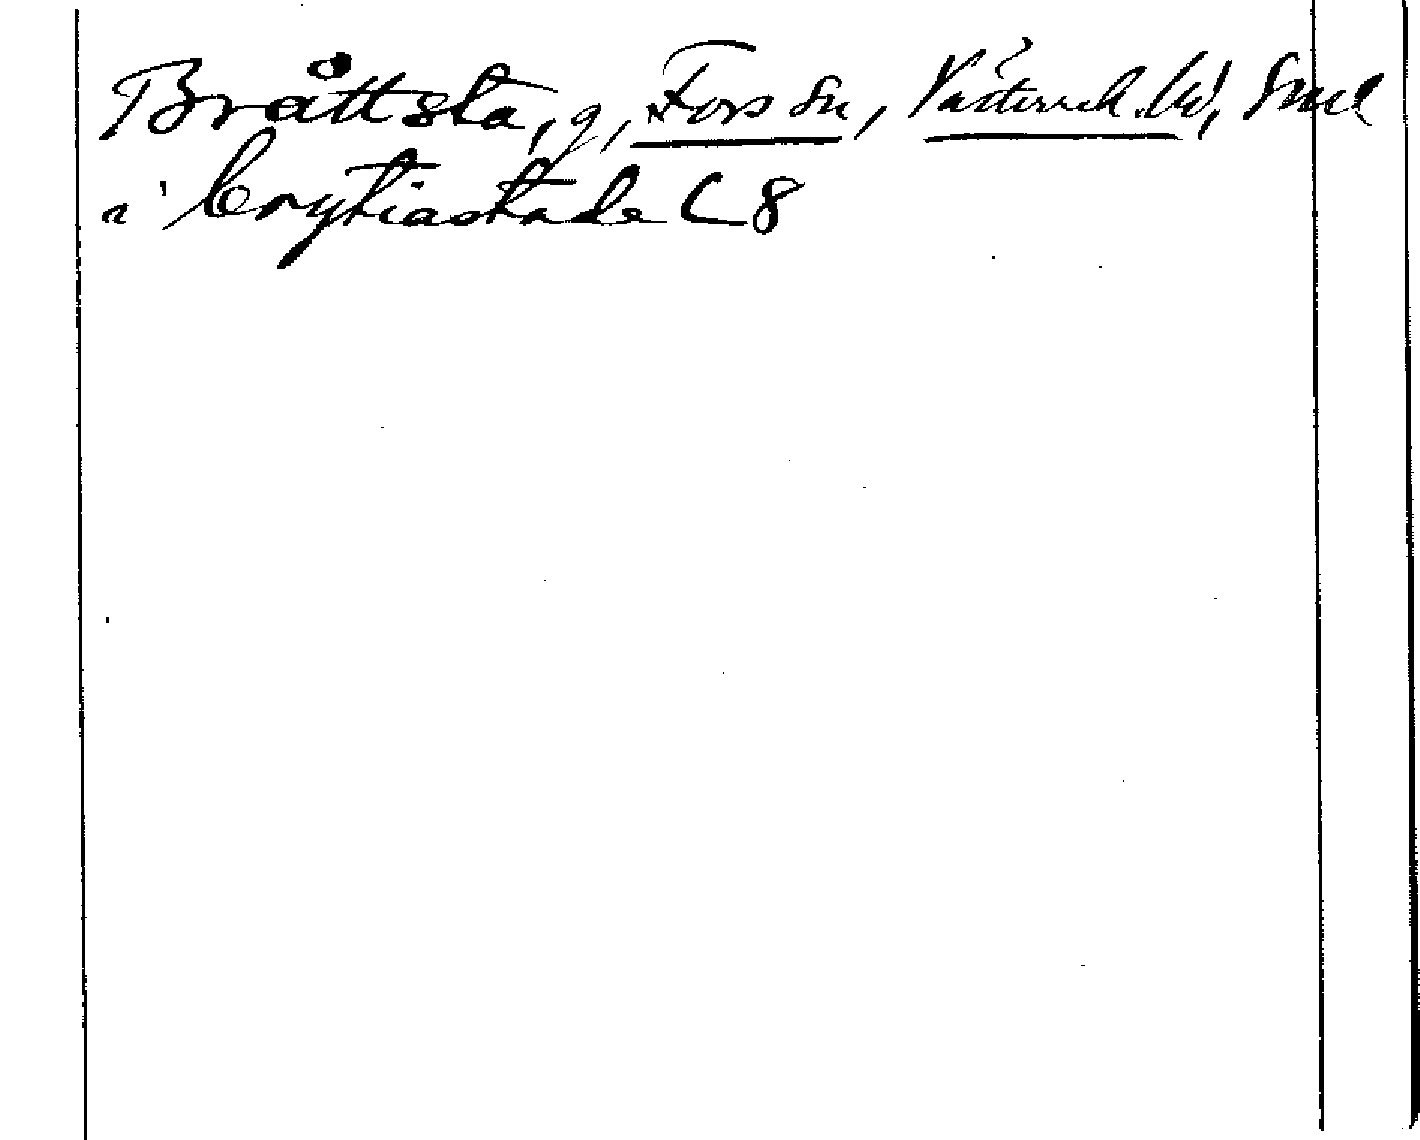 Bråttsta, g, Fors sn, Västerrek. lä, Sml
a' Crytiastade C 8